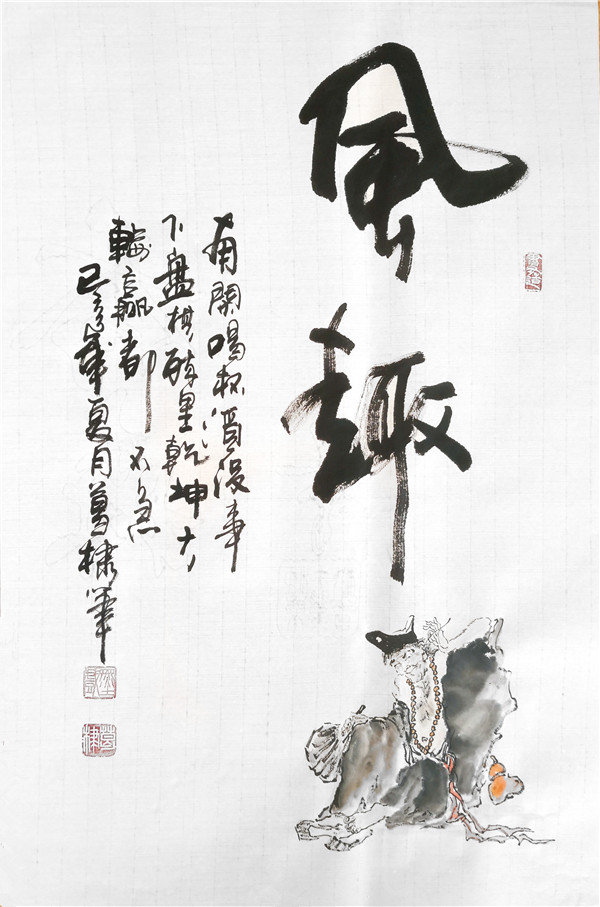 風趣
有閑喝杯酒没事
下盘棋醉里乾坤大
輸赢都不急
己亥歲夏月葛棣筆